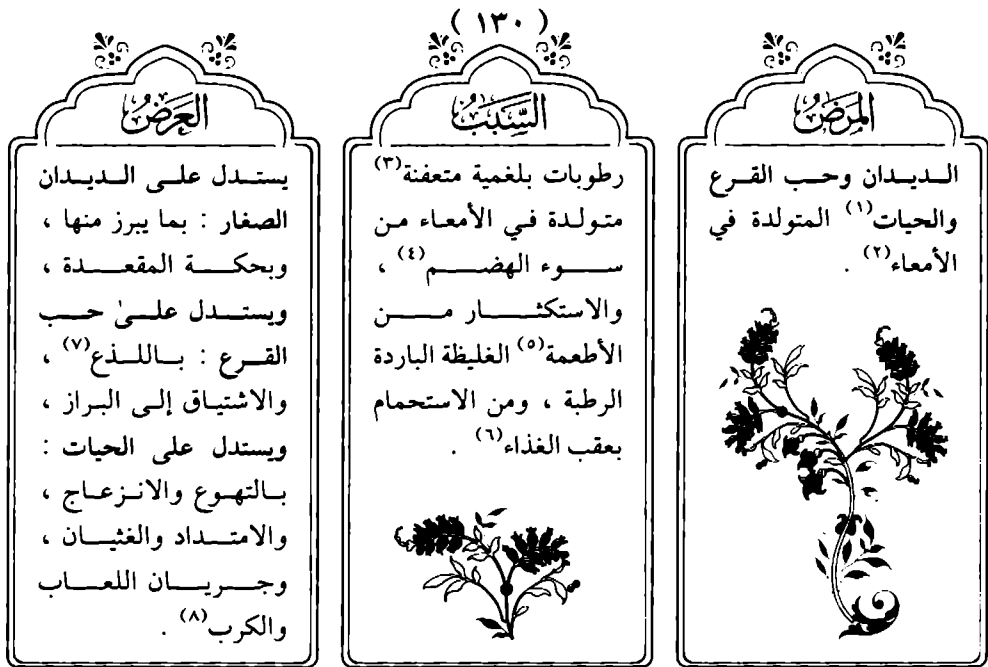 ( ١٣٠ )
المَرَضُ
الديدان وحب القرع
والحيات(١) المتولدة في
الأمعاء(٢) .
السَّبَبُ
رطوبات بلغمية متعفنة(٣)
متولدة في الأمعاء من
سوء الهضم(٤) ،
والاستكثار من
الأطعمة(٥) الغليظة الباردة
الرطبة ، ومن الاستحمام
بعقب الغذاء(٦) .
العَرَضُ
يستدل على الديدان
الصغار : بما يبرز منها ،
وبحكة المقعدة ،
ويستدل علىٰ حب
القرع : باللذع(٧) ،
والاشتياق إلى البراز ،
ويستدل على الحيات :
بالتهوع والانزعاج ،
والامتداد والغثيان ،
وجريان اللعاب
والكرب(٨) .